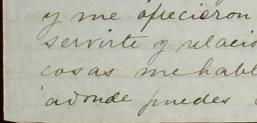 y me ofrecieron
servirte y relacio
cosas me habl
adonde puedes